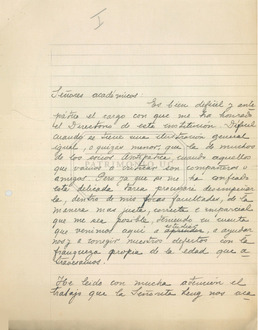 I
Señores académicos
Es bien dificil y anti
pático el cargo con que me ha honrado
el Directorio de esta institucion. Dificil
cuando se tiene una ilustracion general
igual, o quizas menor, que la de muchos
de los socios. Antipático, cuando aquellos
que vamos a criticar son compañeros o
amigos. Pero ya que se me ha confiado
esta delicada tarea procurare desempeñar
la, dentro de mis pocas facultades, de la
manera mas justa, correcta e imparcial
que me sea posible, teniendo en cuenta
que venimos aqui a estudiar, a ayudar
nos y a corregir nuestros defectos con la
franqueza propia de la edad que a
travesamos.
He leido con mucha atencion el
trabajo que la Señorita nos aca